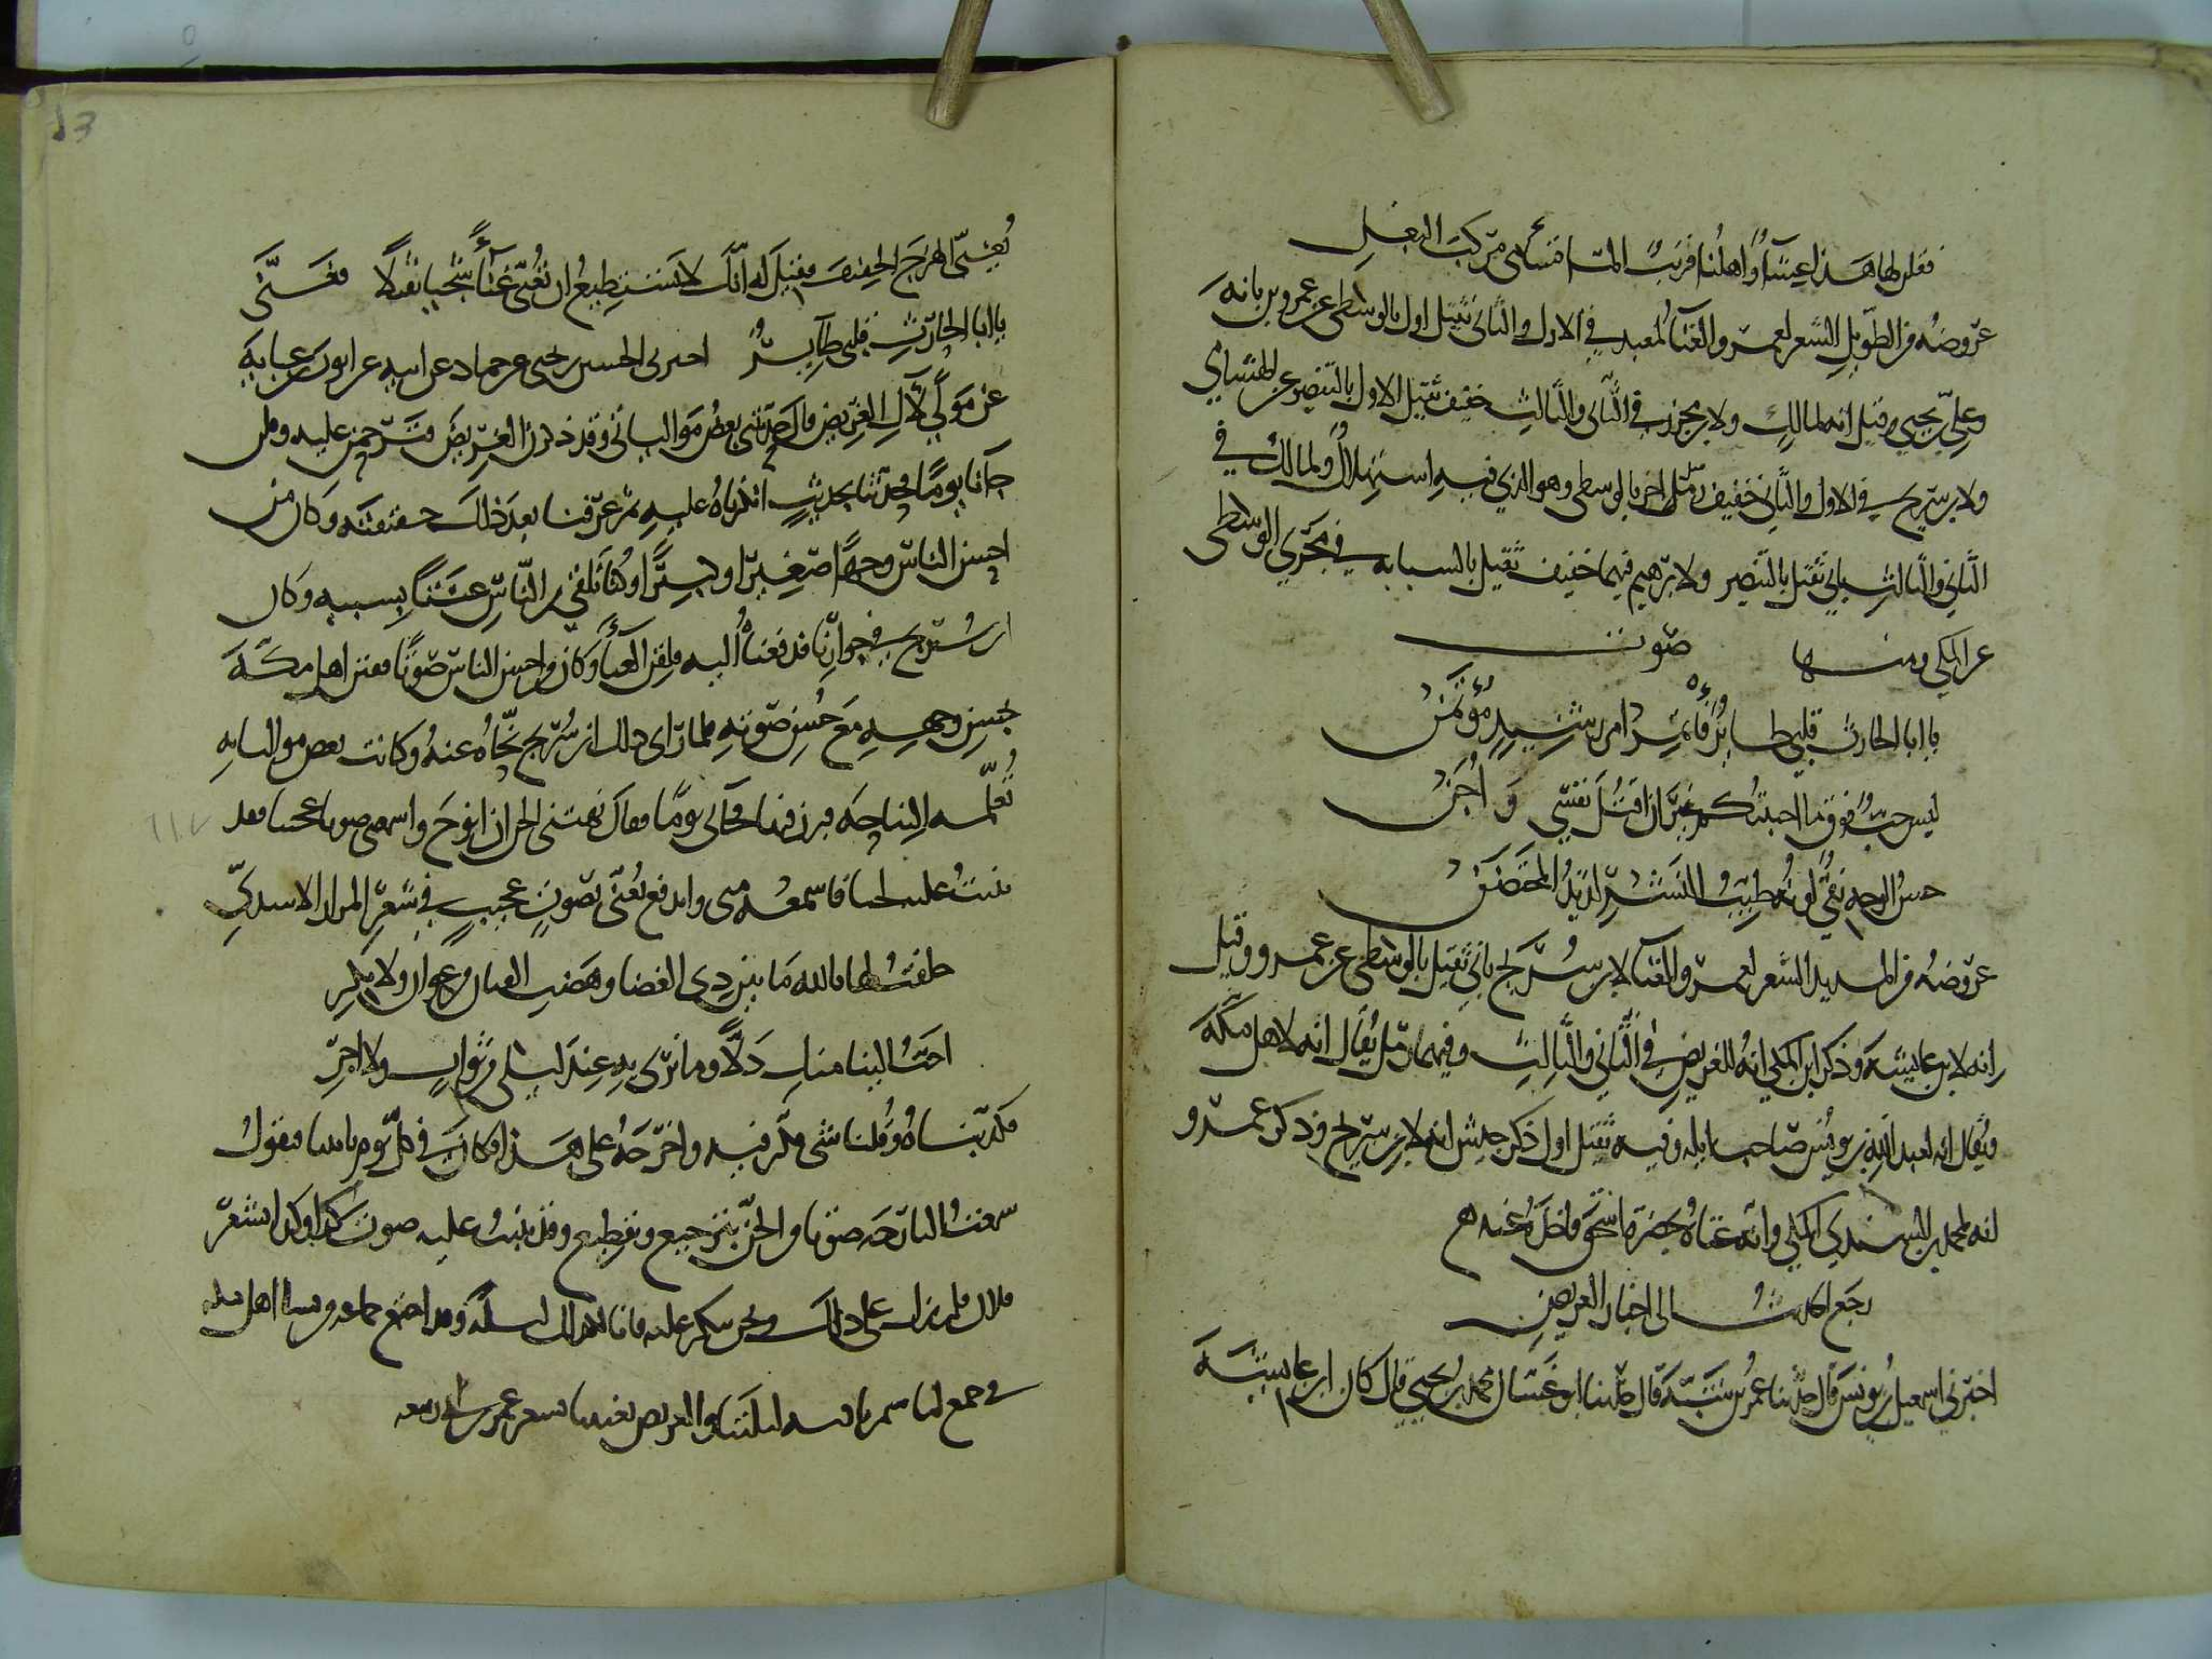 فقلن لها هذا عشاء واهلنا قريب الما تسامى مركب البغل
عروضه من الطويل الشعر لعمر والغناء لمعبد في الاول والثاني ثقيل اول بالوسطى عن عمرو بن بانه
وعلي بن يحيى وقيل انه لمالك ولابن محرز في الثاني والثالث خفيف ثقيل الاول بالبنصر عن الهشامي
ولابن سريج في الاول والثاني خفيف رمل اخر بالوسطى وهو الذي فيه استهلال ولمالك في
الثاني والثالث ثاني ثقيل بالبنصر ولابرهيم فيهما خفيف ثقيل بالسبابه في مجرى الوسطى
عن المكي ومنها صوت
يا ابا الحارث قلبي طاير فأتمر امر رشيد مؤتمن
ليس حب فوق ما احببتكم غير ان اقتل نفسي و اجن
حسن الوجه نقي لونه طيب النشر لذيذ المحتضن
عروضه من المديد الشعر لعمر والغناء لابن سريج ثاني ثقيل بالوسطى عن عمرو وقيل
انه لابن عايشه وذكر ابن المكي انه للغريض في الثاني والثالث وفيهما رمل يقال انه لاهل مكة
ويقال انه لعبد الله بن يونس صاحب ايله وفيه ثقيل اول ذكر حبش انه لابن سريج وذكر عمرو
انه لمحمد بن السندي المكي وانه غناه بحضرة اسحق فاخذه عنه
رجع الحديث الى اخبار الغريض
اخبرني اسمعيل بن يونس قال حدثنا عمر بن شبة قال حدثنا ابو غسان محمد بن يحيى قال كان ابن عايشه
13
يغني الهزج الخفيف فقيل له انك لا تستطيع ان تغني غناء شجيا ثقيلا فغنى
يا ابا الحارث قلبي طاير اخبرني الحسين بن يحيى عن حماد عن ابيه عن ايوب بن عبايه
عن مولى لآل الغريض قال حدثني بعض مولياتي وقد ذكرن الغريض فترحمن عليه وقلن
جاءنا يوما يحدثنا بحديث انكرناه عليه ثم عرفنا بعد ذلك حقيقته وكان من
احسن الناس وجها صغيرا وكبيرا وكنا نلقى من الناس عنتا بسببه وكان
ابن سريج في جوارنا فدفعناه اليه فلقن الغناء وكان من احسن الناس صوتا ففتن اهل مكة
بحسن وجهه مع حسن صوته فلما راى ذلك ابن سريج نحاه عنه وكانت بعض مولياته
تعلمه النياحه فبرز فيها فجاني يوما فقال نهتني الجن ان انوح واسمعتني صوتا عجيبا فقد
بنيت عليه لحنا فاسمعيه مني واندفع يغني بصوت عجيب في شعر المرار الاسدي
حلفت لها بالله ما بين ذي الغضا وهضب القنان من عوان ولا بكر
احب الينا منك دلا وما نرى به عند ليلى من ثواب ولا اجر
فكذبناه وقلنا شي فكر فيه واخرجه على هذا فكان في كل يوم ياتينا فيقول
سمعت البارحه صوتا من الجن بترجيع وتقطيع وقد بنيت عليه صوت كذا وكذا بشعر
فلان فلم يزل على ذلك ونحن ننكر عليه فانا لكذلك ليلة وقد اجتمع جماعه من نسا اهل مكه
في جمع لنا سمرنا فيه ليلتنا والغريض يغنينا بشعر عمر بن ابي ربيعه